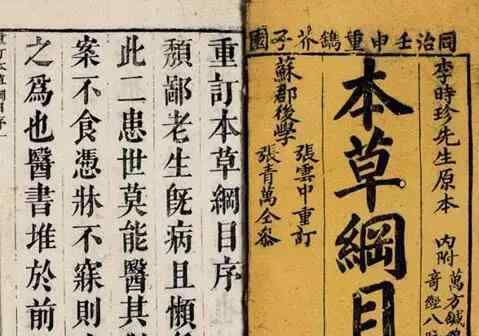 同治壬申重鐫芥子園
李時珍先生原本
內附
萬方鍼
奇經八
本草綱目
張雲中重訂
張青萬仝參
蘇郡後學
重訂本草綱目序
頹鄙老生旣病且懶
此二患世莫能醫其
案不食憑牀不寐則
之爲也醫書堆於前